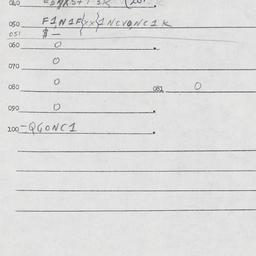 050 F1N1F(xx)1NCVQNC1K
051 $ —
060 0
070 0
080 0 081 0
090 0
100 -QGONC1